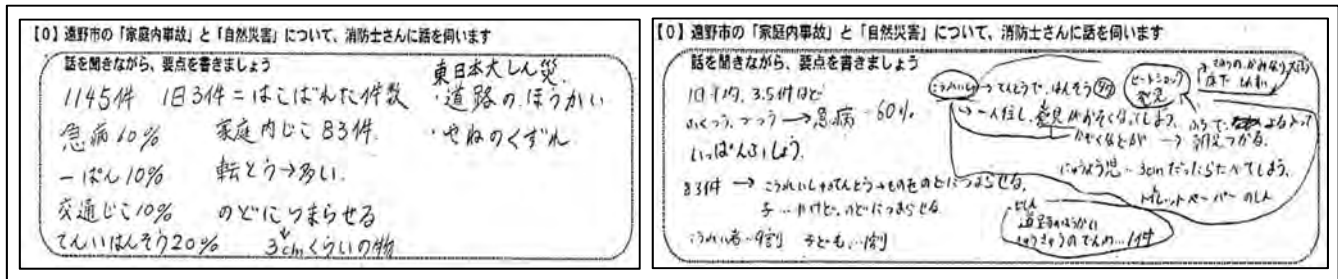 【0】遠野市の「家庭内事故」と「自然災害」について、消防士さんに話を伺います
話を聞きながら、要点を書きましょう
1145件 1日3件=はこばれた件数
急病60% 家庭内じこ83件.
一ぱん10% 転とう→多い.
交通じこ10% のどにつまらせる
てんいはんそう20% 3cmくらいの物
東日本大しん災.
・道路のほうかい
・やねのくずれ
【0】遠野市の「家庭内事故」と「自然災害」について、消防士さんに話を伺います
話を聞きながら、要点を書きましょう
1日平均、3.5件ほど
ふくつう、ずつう→急病…60%
いっぱんふしょう.
83件→こうれいしゃ…てんとう→ものをのどにつまらせる.
子…やけど、のどにつまらせる.
こうれい者…9割 子ども…1割
こうれいしゃ→てんとうで、はんそう
ヒートショック
発見
一人住し、発見がおそくなってしまう.
かぞくなどが
にゅうよう児…3cmだったらたべてしまう.
トイレットペーパーのしん
道路のほうかい